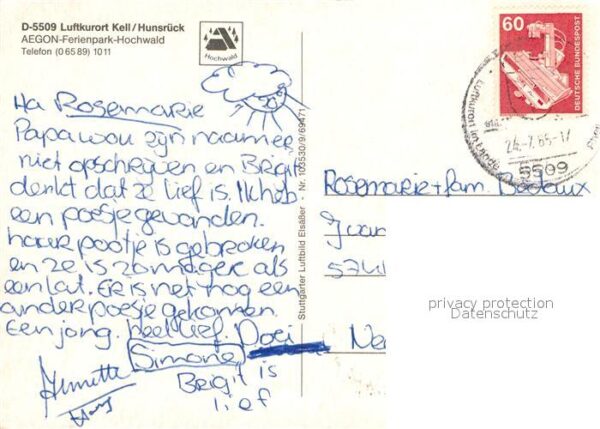 D-5509 Luftkurort Kell/Hunsrück
AEGON-Ferienpark-Hochwald
Telefon (06589) 1011
Hochwald
60
DEUTSCHE BUNDESPOST
Luftkurort im Lande
24.-7.85-17
5509
Ha Rosemarie
Papa wou zijn naam er
niet opschrijven en Brigit
denkt dat ze lief is. Ik heb
een poesje gevonden.
haar pootje is gebroken
en ze is zo mager als
een lat. Er is net nog een
ander poesje gekomen.
Een jong. heel lief. Doei
Simone
Annette
Hans
Brigit is
lief
Stuttgarter Luftbild Elsäßer - Nr. 103530/9/69471
Rosemarie + fam.
privacy protection
Datenschutz